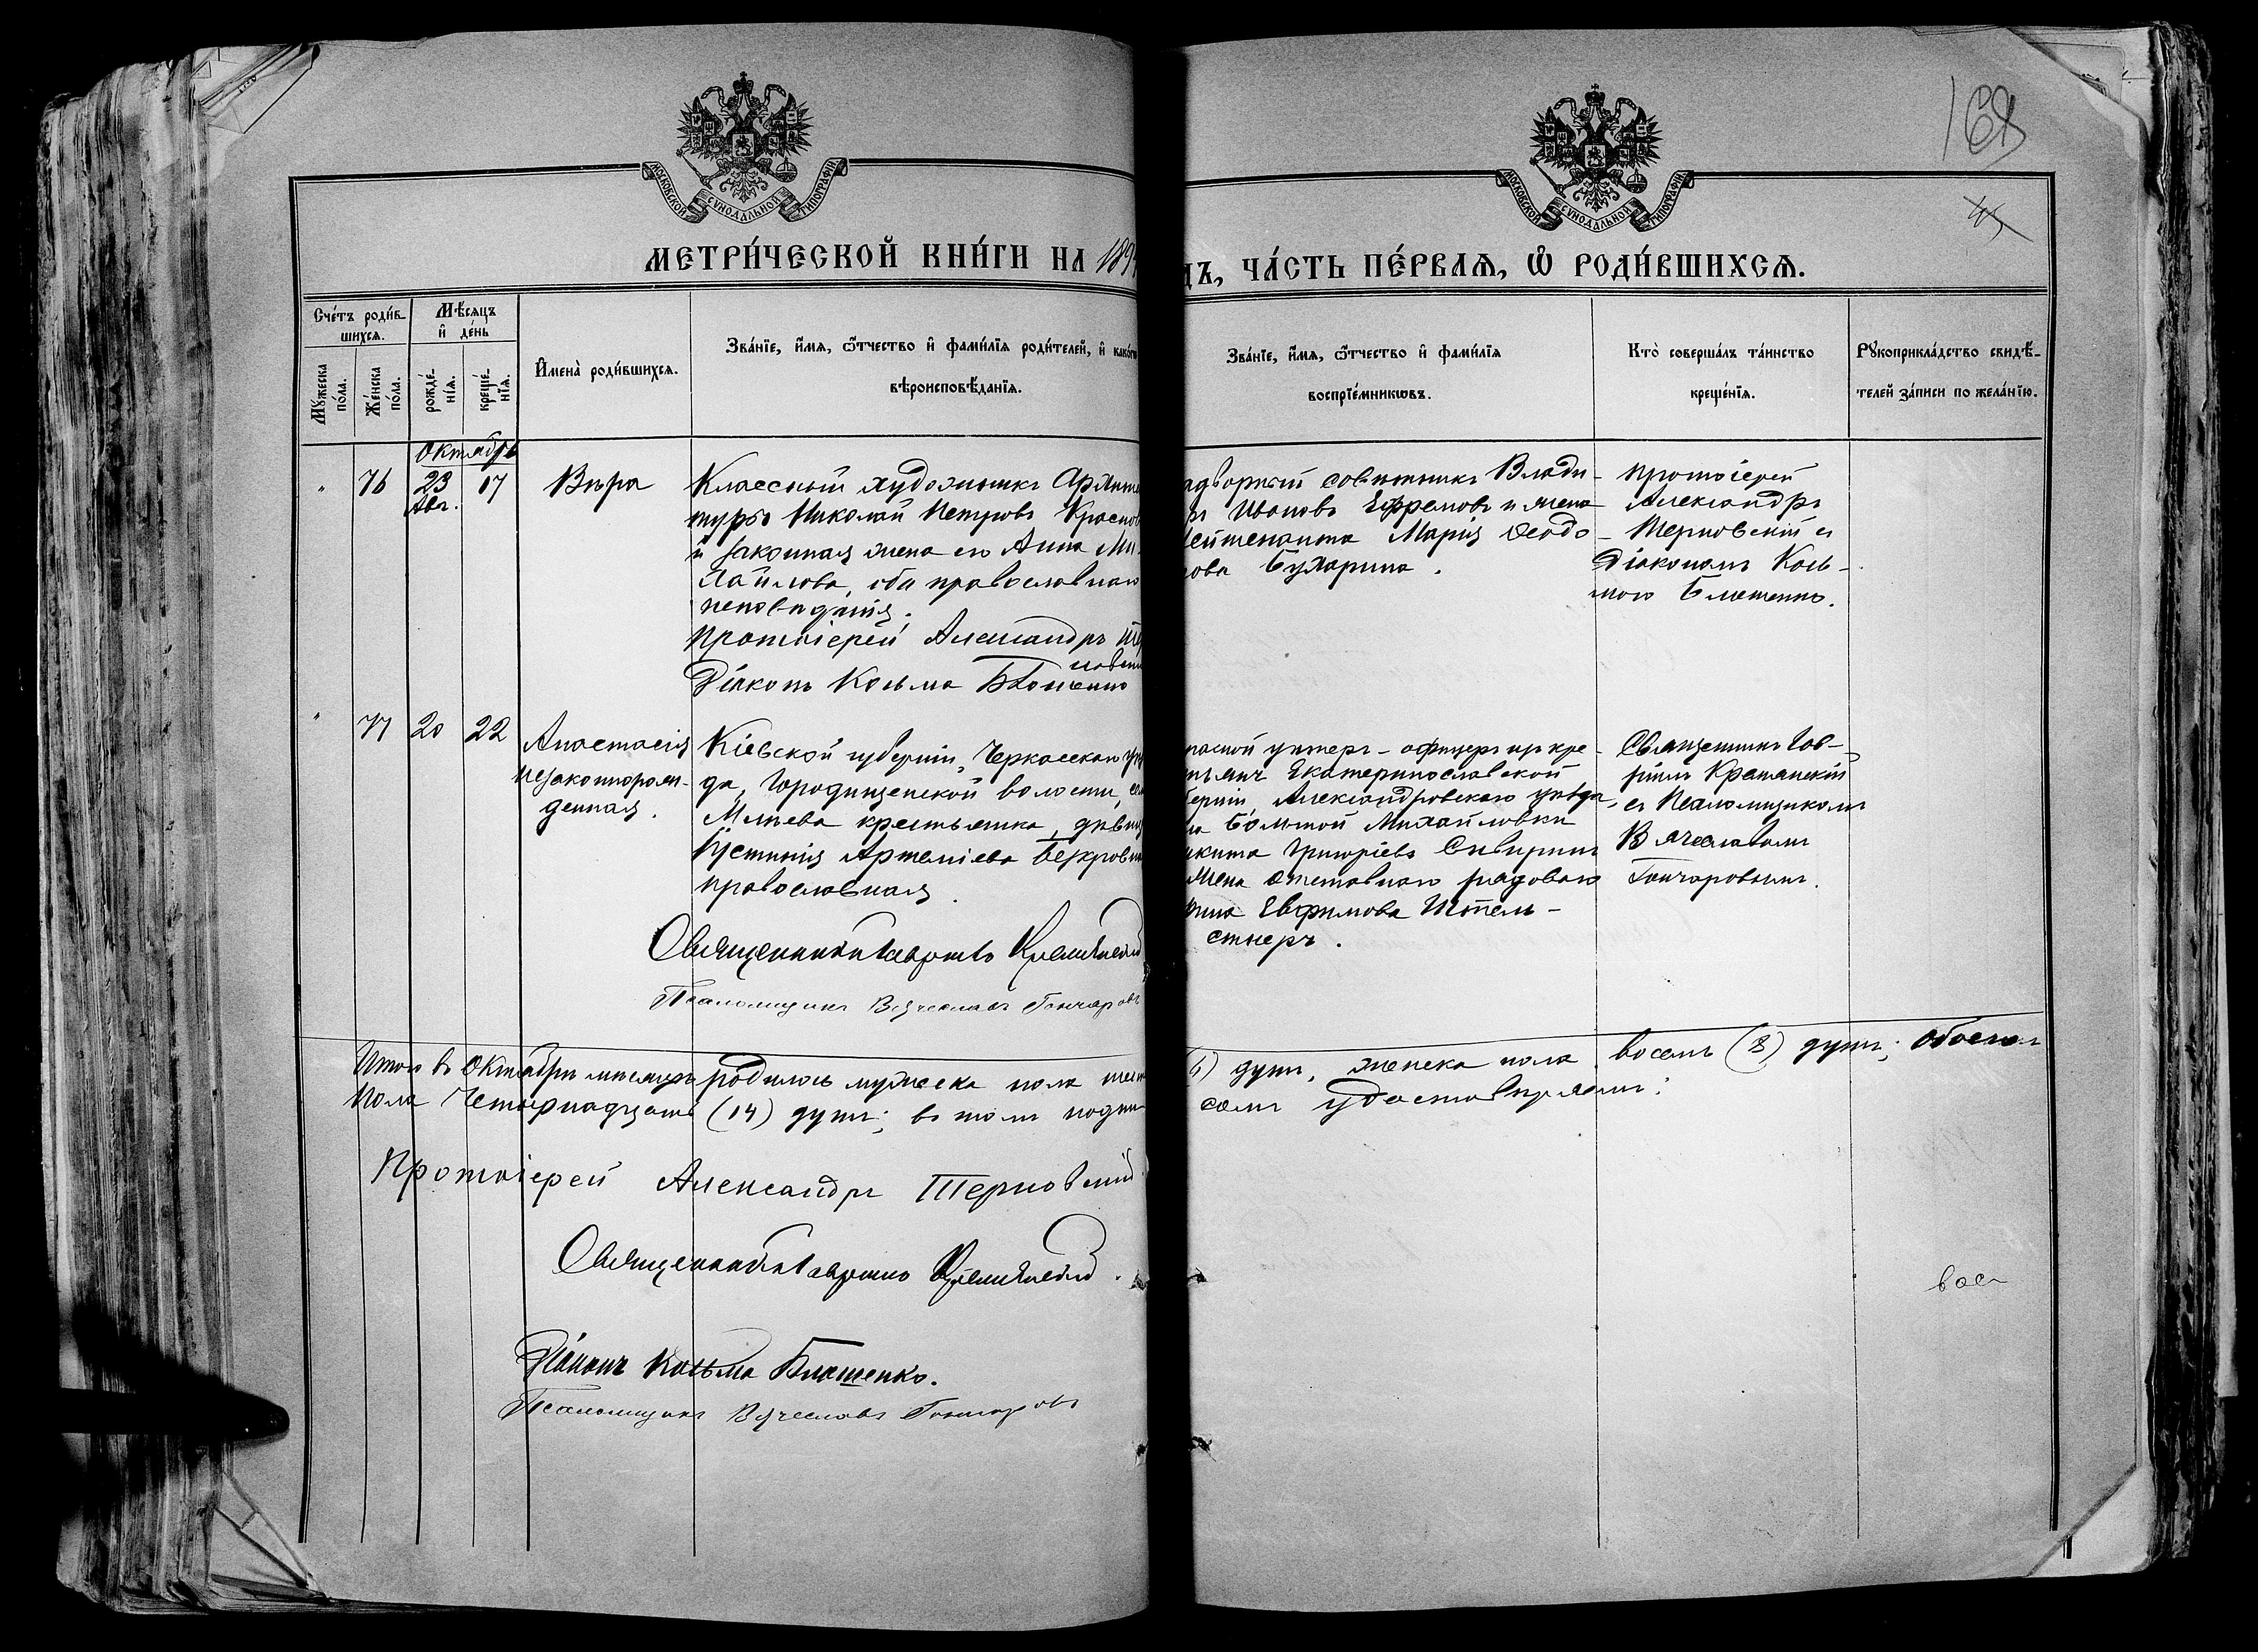 168
МОСКОВСКОЙ СУНОДАЛЬНОЙ ТИПОГРАФІИ
МОСКОВСКОЙ СУНОДАЛЬНОЙ ТИПОГРАФІИ
МЕТРИ́ЧЕСКОЙ КНИ́ГИ НА 189
ДЪ, ЧА́СТЬ ПЕ́РВАѦ, Ѡ РОДИ́ВШИХСѦ.
Сче́тъ роди́в-
шихсѧ.
Мꙋ́жеска по́ла.
Же́нска по́ла.
Мѣ́сѧцъ
и҆ де́нь
рожде́-
нїѧ.
креще́-
нїѧ.
И҆мена̀ роди́вшихсѧ.
Зва́нїе, и҆́мѧ, ѻ҆́тчество и҆ фами́лїѧ роди́телей, и҆ како́гѡ
вѣроисповѣ́данїѧ.
Зва́нїе, и҆́мѧ, ѻ҆́тчество и҆ фами́лїѧ
воспрїе́мникѡвъ.
Кто̀ соверша́лъ та́инство
креще́нїѧ.
Рꙋкоприкла́дство свидѣ́-
телей за́писи по жела́нїю.
Октябрь
" 76 23 Авг. 17 Вѣра
Классный художникъ Архите
туры Николай Петровъ Краснов
и законная жена его Анна Ми
хайлова, оба православнаго
исповѣданія.
Протоіерей Александръ Тер
новскі
Діаконъ Козьма Блошенко
адворный совѣтникъ Влади-
ръ Ивановъ Ефремовъ и жена
лейтенанта Марія Ѳеодо-
рова Бухарина.
Протоіерей
Александръ
Терновскій съ
Діакономъ Козь-
мою Блошенко.
" 77 20 22 Анастасія
незаконнорож-
денная.
Кіевской губерніи, Черкасскаго уѣз
да, Городищенской волости, се
Млѣева крестьянка, дѣвиц
Іустинія Артеміева Безкровн
православная.
Священникъ Гавріилъ Крамянскій
Псаломщикъ Вячеславъ Гончаровъ
пасной унтеръ-офицеръ изъ кре-
стьянъ Екатеринославской
берніи, Александровскаго уѣзда,
ла Большой Михайловки
икита Григоріевъ
жена отставнаго рядоваго
рина Евфимова Штель-
Священникъ Гав-
ріилъ
съ Псаломщикомъ
Вячеславомъ
Гончаровымъ.
Итого въ Октябрѣ мѣсяцѣ родилось мужеска пола шест
6) душъ, женска пола восемь (8) душъ; обоего
пола четырнадцать (14) душъ; въ томъ подпи
семъ удостовѣряемъ:
Протоіерей Александръ Терновскій
Священникъ Гавріилъ Крамянскій.
Діаконъ Козьма Блошенко.
Псаломщикъ Вячеславъ Гончаровъ
вос